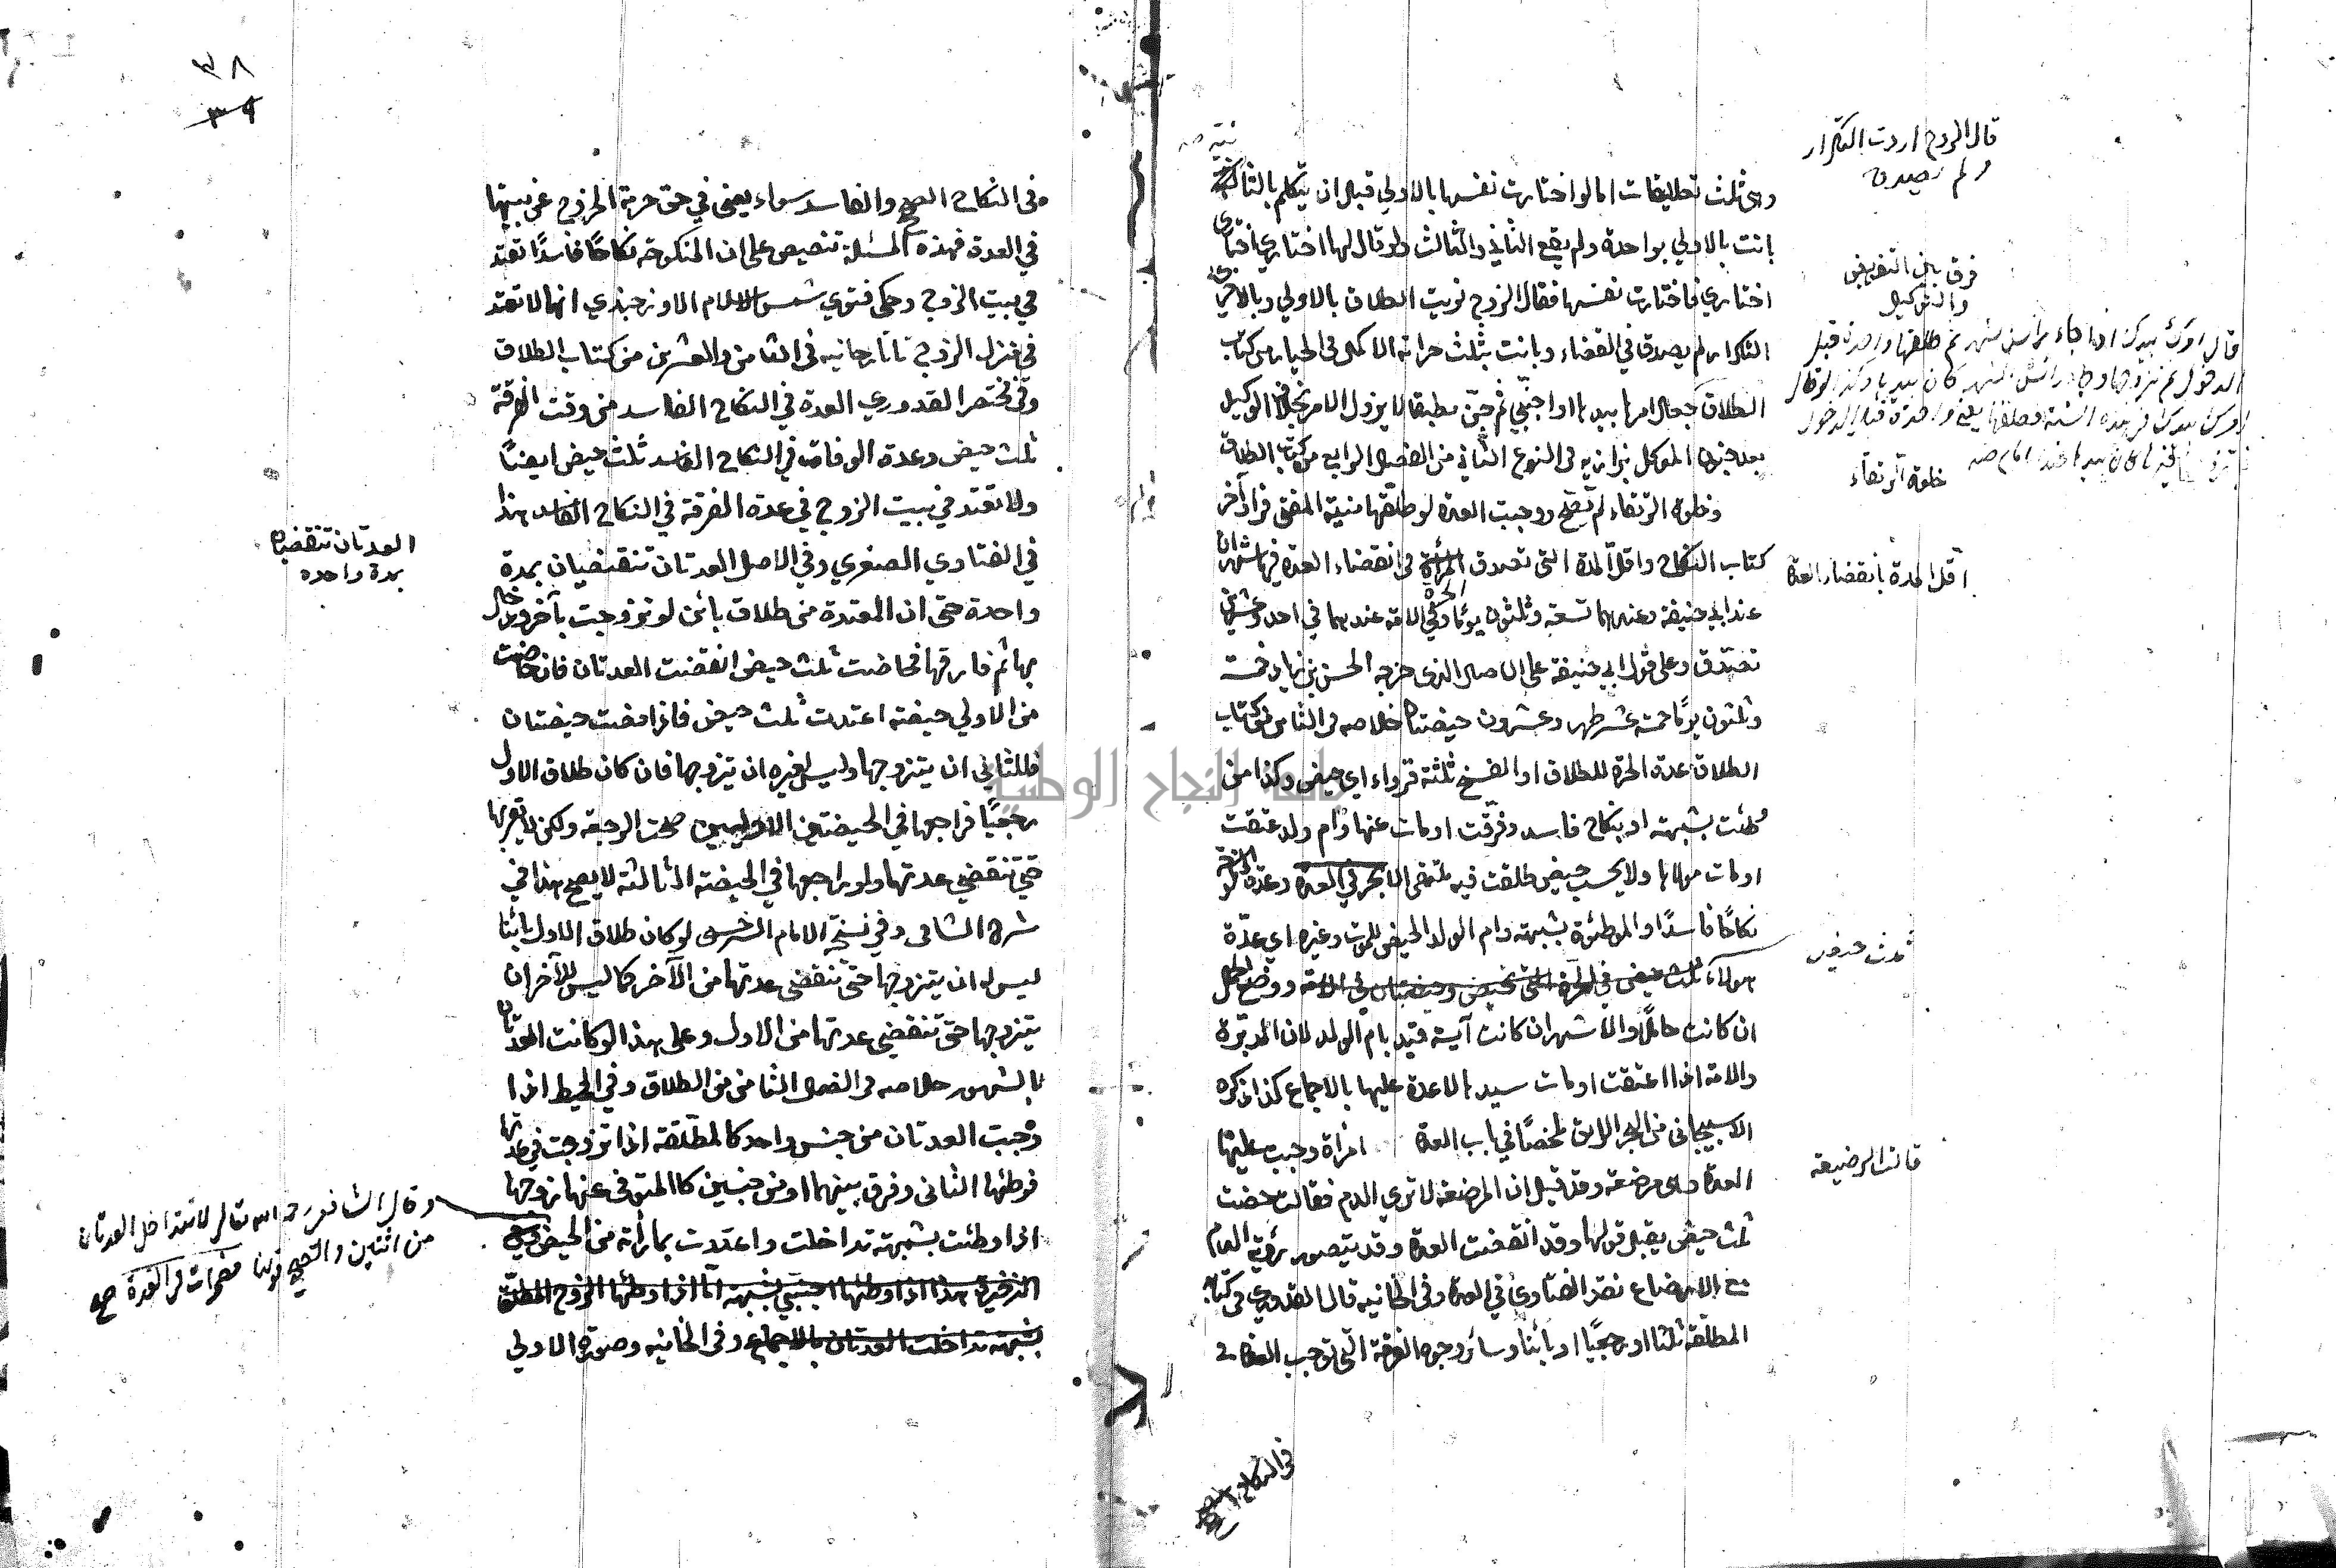 قال الزوج اردت التكرار
ولم يصدق
فرق بين التفويض
والتوكيل
قال امرك بيدك اذا جاء رأس الشهر ثم طلقها واحدة قبل
الدخول ثم تزوجها وجاء رأس الشهر كان بيدها وكذا لو قال
خلوة الرتقاء
اقل المدة بانقضاء العدة
ثلث حيض
قالت المرضعة
وهي ثلث تطليقات اما لو اختارت نفسها بالاولى قبل ان يتكلم بالثانية
بانت بالاولى بواحدة ولم يقع الثاني والثالث ولو قال لها اختاري اختاري
اختاري فاختارت نفسها فقال الزوج نويت الطلاق بالاولى وبالاخرى
التكرار لم يصدق في القضاء وبانت بثلث خزانة الاكمل في الخيار من كتاب
الطلاق جعل امرها بيدها او اجنبي ثم جن مطبقا لا يزول الامر بخلاف التوكيل
بعد جنون الموكل بزازيه في النوع الثاني من الفصل الرابع من كتاب الطلاق
وخلوة الرتقاء لم تصح ووجبت العدة لو طلقها منية المفتي في آخر
كتاب النكاح واقل المدة التي تصدق المرأة في انقضاء العدة فيها شهران
عند ابي حنيفة وعندهما تسعة وثلثون يوما وفي الامة عندهما في احد وعشرين
تصدق وعلى قول ابي حنيفة على الاصل الذي خرجه الحسن بن زياد خمسة
وثلثون يوما خمسة عشر طهر وعشرون حيضتان خلاصه في الثامن من كتاب
الطلاق عدة الحرة للطلاق او الفسخ ثلثة قروء اي حيض وكذا من
وطئت بشبهة او بنكاح فاسد وفرقت او مات عنها وام ولد عتقت
او مات مولاها ولا يحسب حيض طلقت فيه ملتقى الابحر في العدة وعدة المنكوحة
نكاحا فاسدا والموطئوة بشبهة وام الولد الحيض للموت وغيره اي عدة
هولاء ثلث حيض في الحرة التي تحيض وحيضتان في الامة ووضع الحمل
ان كانت حاملا والاشهر ان كانت آيسة قيد بام الولد لان المدبرة
والامة اذا اعتقت او مات سيدها لا عدة عليها بالاجماع كذا ذكره
الاسبيجابي من البحر الرائق ملخصا في باب العدة امرأة وجبت عليها
العدة وهي مرضعة وقد قيل ان المرضعة لا ترى الدم فقالت حضت
ثلث حيض يقبل قولها وقد انقضت العدة وقد يتصور رؤية الدم
مع الارضاع نقد الفتاوى في العدة وفي الخانيه قال القدوري في كتابه
المطلقة ثلثا او رجعيا او بائنا وسائر وجوه الفرقة التي توجب العدة
في النكاح الصحيح
٣٨
٣٩
في النكاح الصحيح والفاسد سواء يعني في حق حرمة الخروج عن بيتها
في العدة فهذه المسئلة تنصيص على ان المنكوحة نكاحا فاسدا تعتد
في بيت الزوج وحكى فتوى شمس الاسلام الاوزجندي انها لا تعتد
في منزل الزوج تاتارخانيه في الثامن والعشرين من كتاب الطلاق
وفي مختصر القدوري العدة في النكاح الفاسد من وقت الفرقة
ثلث حيض وعدة الوفاة في النكاح الفاسد ثلث حيض ايضا
ولا تعتد في بيت الزوج في عدة الفرقة في النكاح الفاسد هذا
في الفتاوى الصغرى وفي الاصل العدتان تنقضيان بمدة
واحدة حتى ان المعتدة من طلاق بائن لو تزوجت بآخر ودخل
بها ثم فارقها فحاضت ثلث حيض انقضت العدتان فان حاضت
من الاولى حيضة اعتدت ثلث حيض فاذا مضت حيضتان
فللثاني ان يتزوجها وليس لغيره ان يتزوجها فان كان طلاق الاول
رجعيا فراجعها في الحيضتين الاوليين صحت الرجعة ولكن لا يقربها
حتى تنقضي عدتها ولو راجعها في الحيضة الثالثة لا يصح هذا في
شرح الشافي وفي نسخة الامام السرخسي لو كان طلاق الاول بائنا
ليس له ان يتزوجها حتى تنقضي عدتها من الآخر كما ليس للآخر ان
يتزوجها حتى تنقضي عدتها من الاول وعلى هذا لو كانت العدتان
بالشهور خلاصه في الفصل الثامن من الطلاق وفي المحيط اذا
وجبت العدتان من جنس واحد كالمطلقة اذا تزوجت في عدتها
فوطئها الثاني وفرق بينهما او من جنسين كالمتوفى عنها زوجها
اذا وطئت بشبهة تداخلت واعتدت بما رأته من الحيض
الذخيرة هذا اذا وطئها اجنبي بشبهة اما اذا وطئها الزوج المطلق
بشبهة تداخلت العدتان بالاجماع وفي الخانيه وصورة الاولى
العدتان تنقضيان
بمدة واحده
وقال الشافعي رحمه الله تعالى لا تتداخل العدتان
من اثنين والصحيح قولنا مضمرات في العدة صح
جامعة النجاح الوطنية